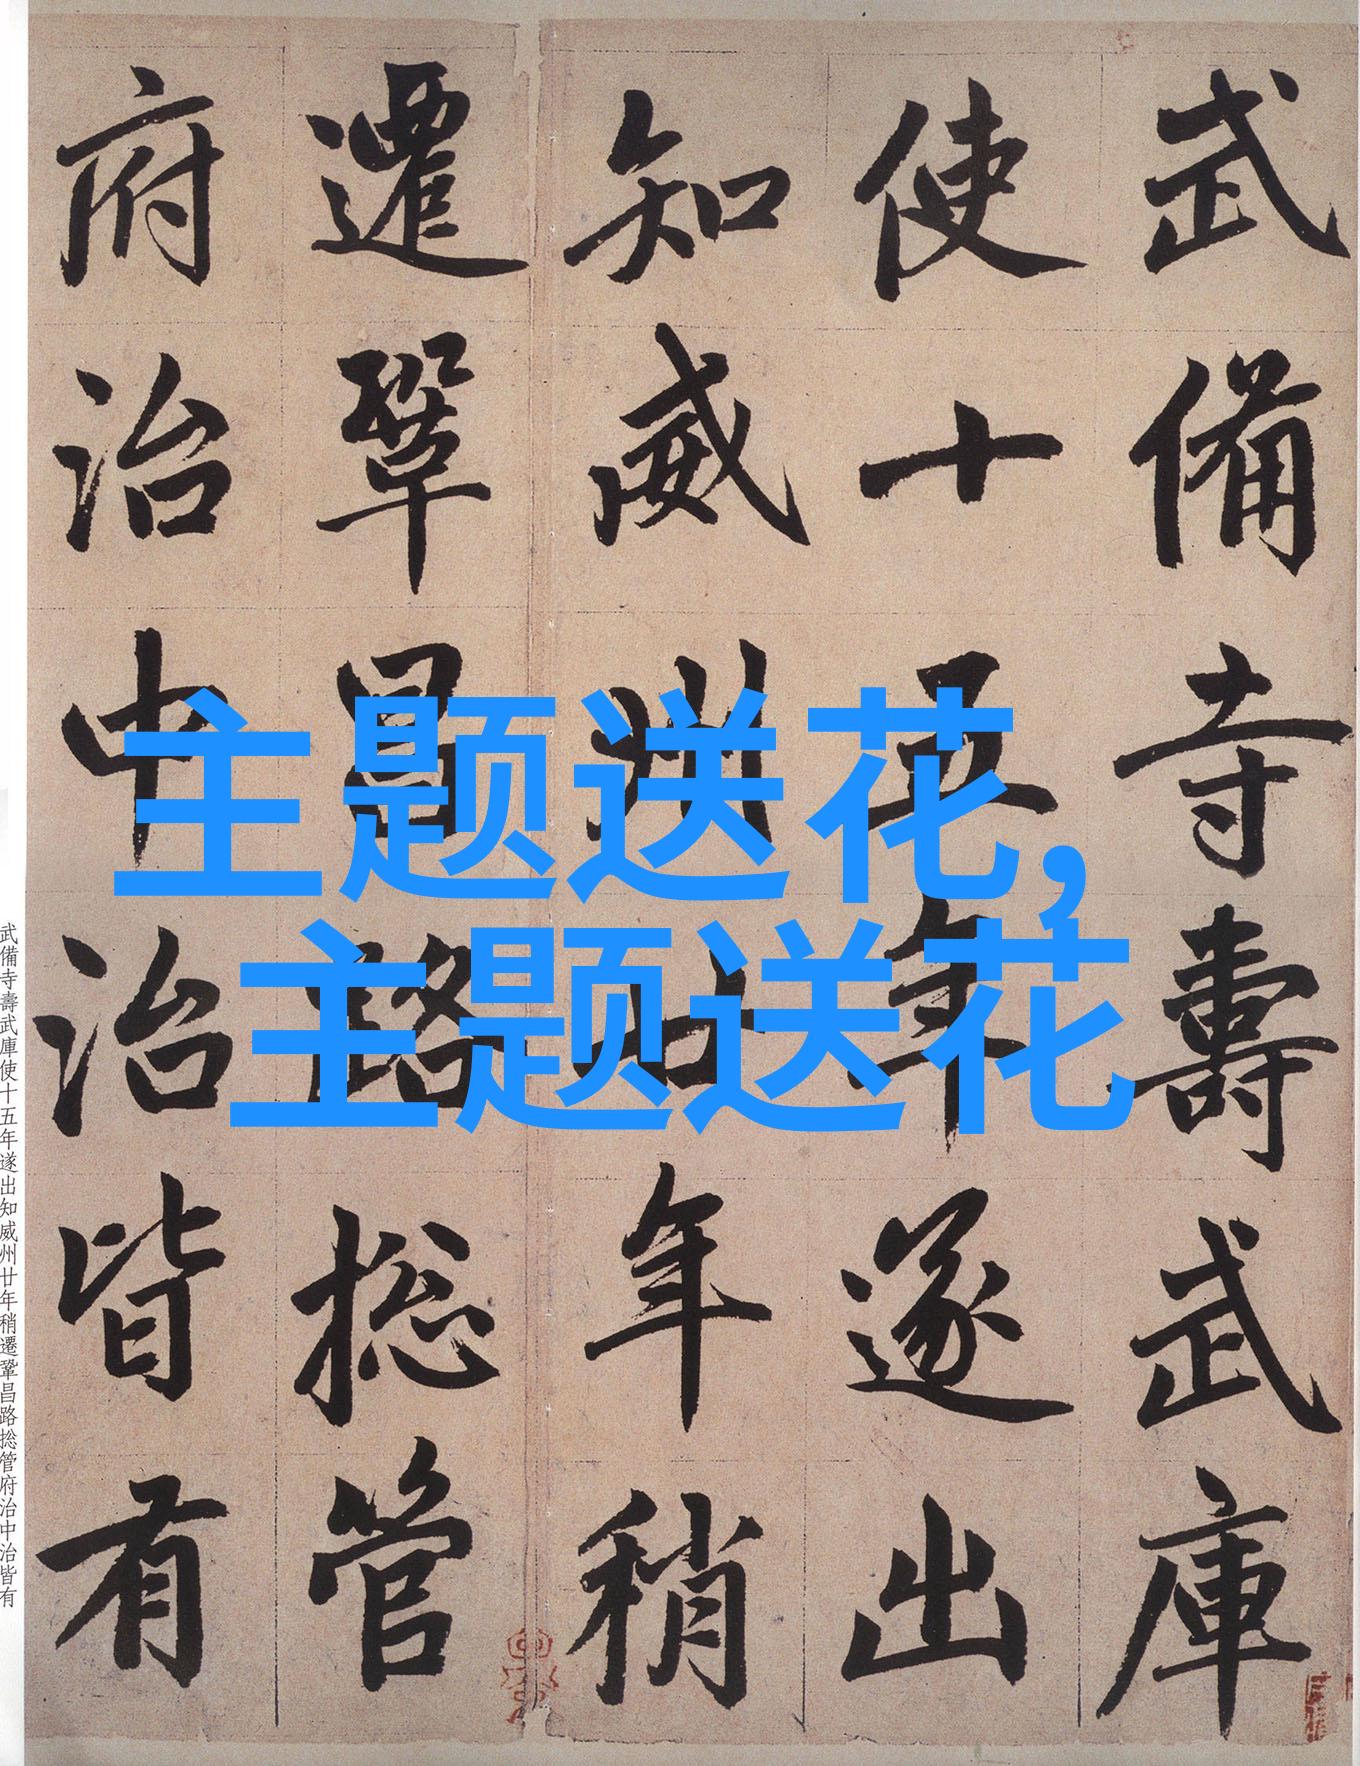 武備寺壽武庫
使十五年遂出
知威州廿年稍
遷鞏昌路捴管
府治中治皆有
主题送花,
主题送花
武備寺壽武庫使十五年遂出知威州廿年稍遷鞏昌路捴管府治中治皆有